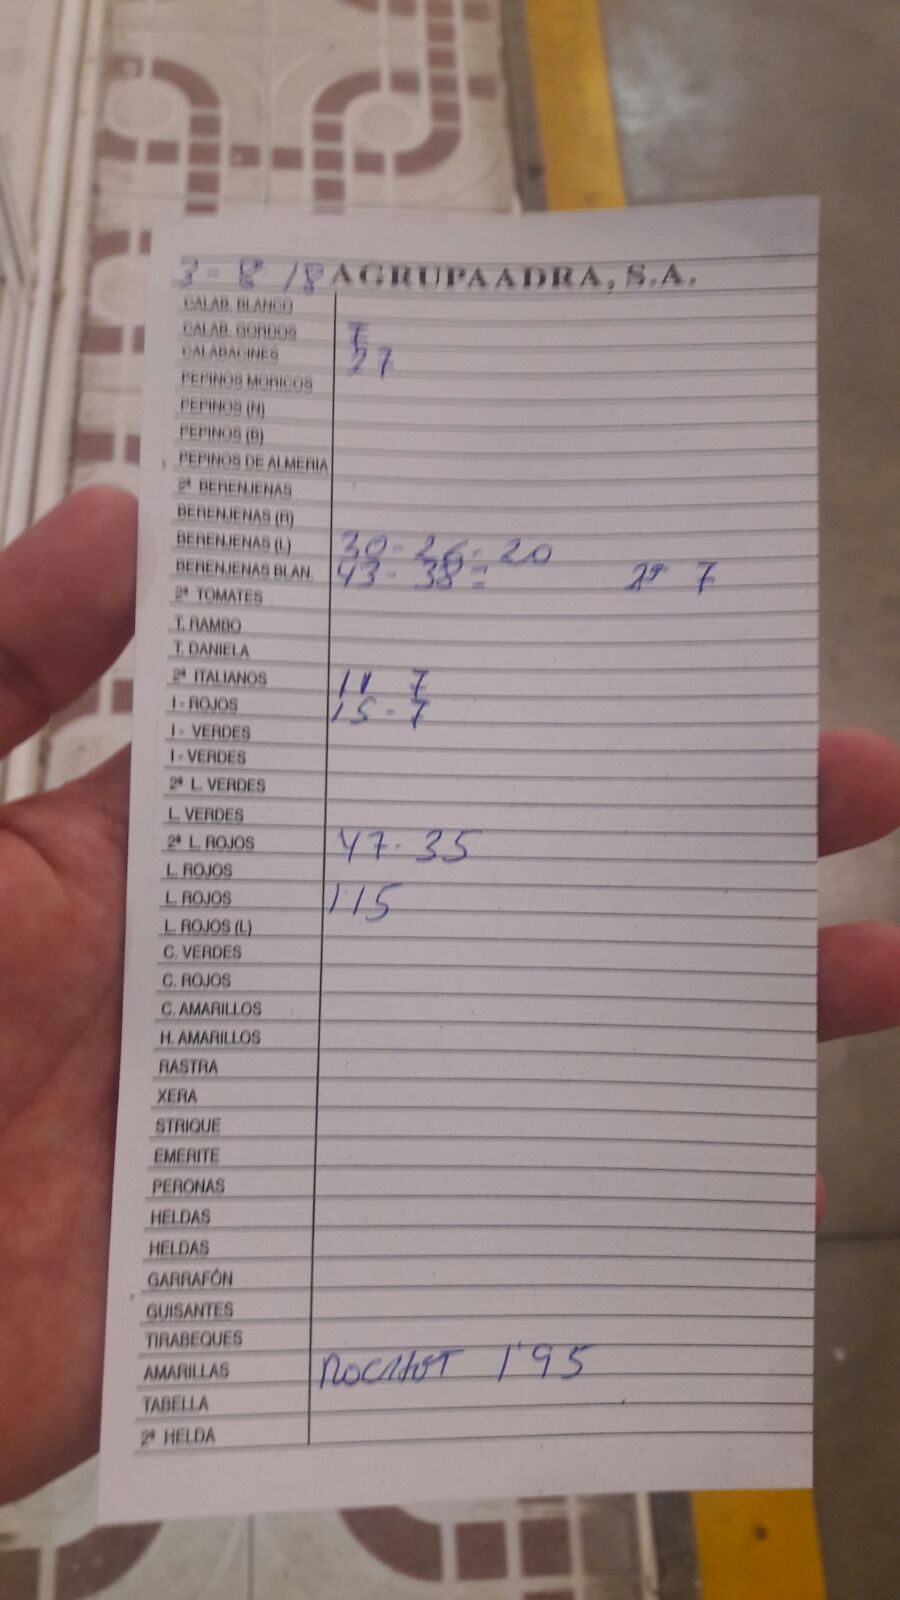 3-8-18 AGRUPAADRA, S.A.
CALAB. BLANCO
CALAB. GORDOS 7
CALABACINES 27
PEPINOS MORICOS
PEPINOS (N)
PEPINOS (B)
PEPINOS DE ALMERIA
2ª BERENJENAS
BERENJENAS (R)
BERENJENAS (L) 30-26-20
BERENJENAS BLAN. 43-38= 2ª 7
2ª TOMATES
T. RAMBO
T. DANIELA
2ª ITALIANOS 11 7
I - ROJOS 15-7
I - VERDES
I - VERDES
2ª L. VERDES
L. VERDES
2ª L. ROJOS 47-35
L. ROJOS
L. ROJOS 115
L. ROJOS (L)
C. VERDES
C. ROJOS
C. AMARILLOS
H. AMARILLOS
RASTRA
XERA
STRIQUE
EMERITE
PERONAS
HELDAS
HELDAS
GARRAFÓN
GUISANTES
TIRABEQUES
AMARILLAS 1'95
TABELLA
2ª HELDA